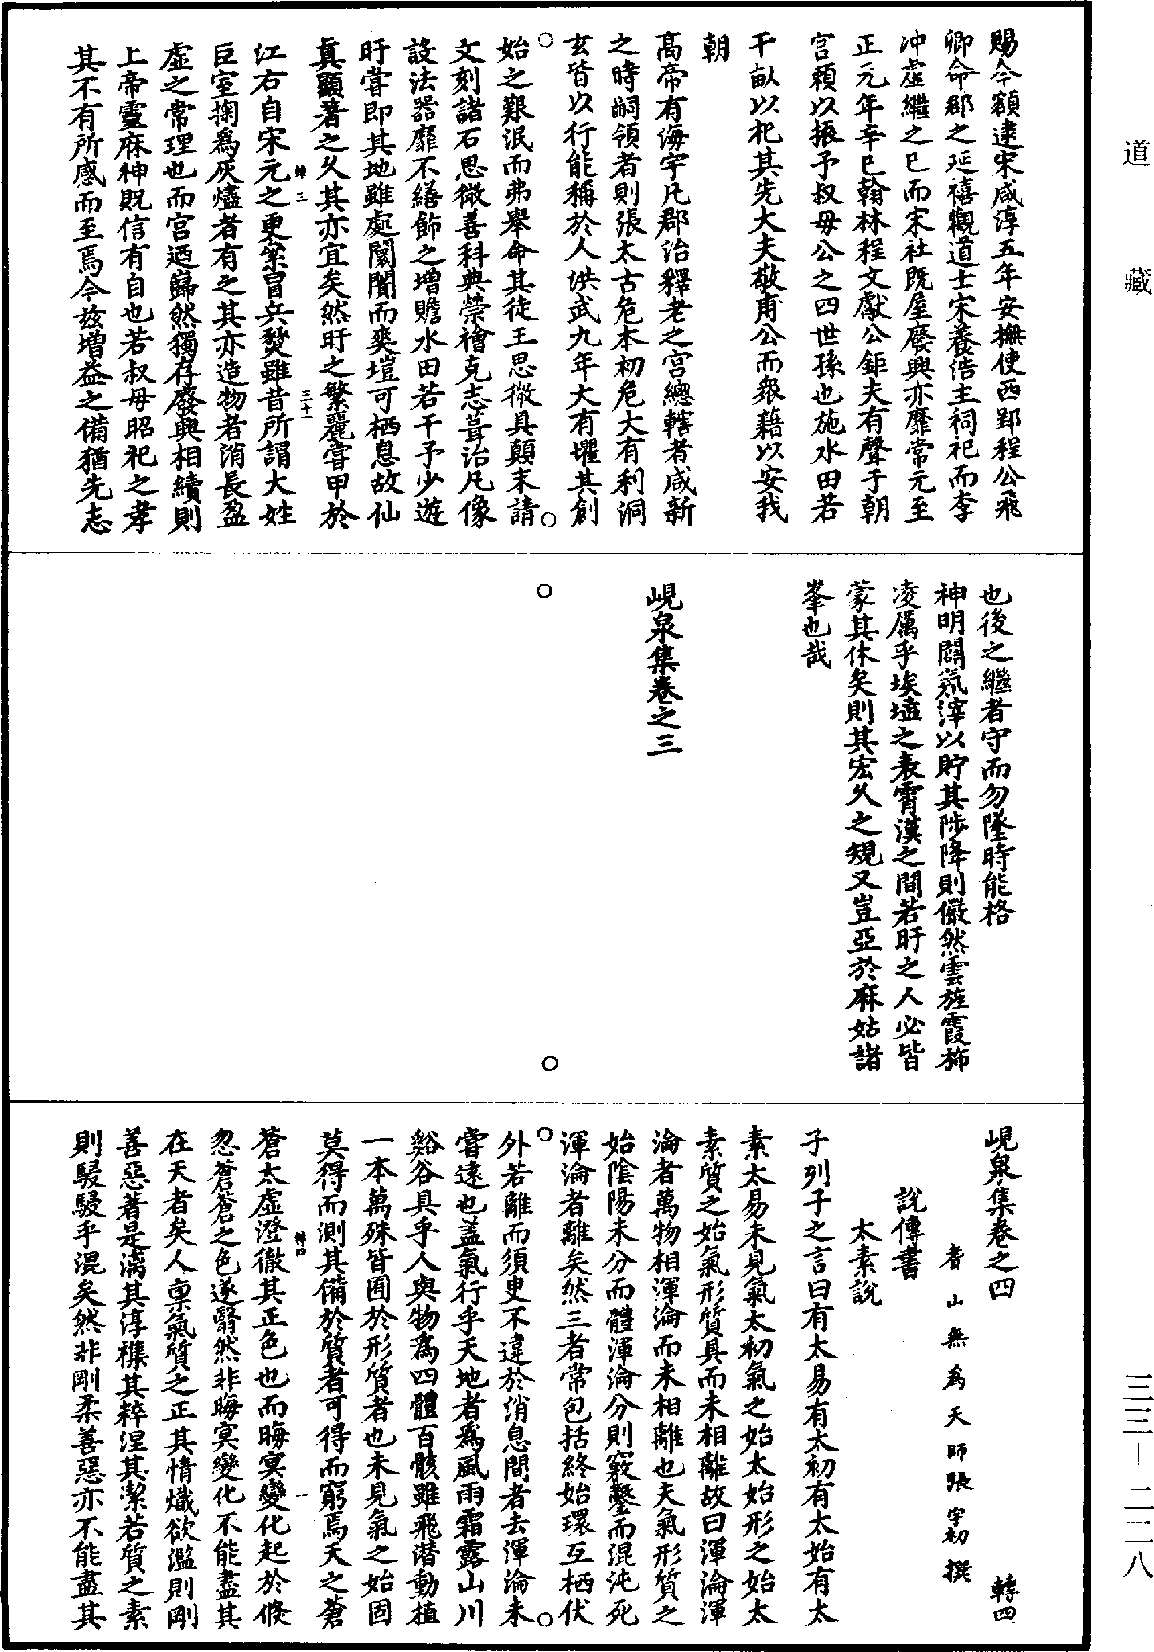 道藏
賜今額逮宋咸淳五年安撫使西郢程公飛
卿命郡之延禧觀道士宋養浩主祠祀而李
冲虛繼之已而宋社既屋廢興亦靡常元至
正元年辛巳翰林程文獻公鉅夫有聲于朝
宫頼以振予叔母公之四世孫也施水田若
干畝以祀其先大夫敬甫公而衆藉以安我
朝
髙帝有海宇凡郡治釋老之宫總轄者咸新
之時嗣領者則張太古危本初危大有利洞
玄皆以行能稱於人洪武九年大有懼其創
始之艱泯而弗舉命其徒王思微具顛末請
文刻諸石思微善科典榮襘克志葺治凡像
設法器靡不繕飾之增贍水田若干予少遊
盱嘗即其地雖處闤闠而爽塏可栖息故仙
眞顯著之久其亦宜矣然盱之繁麗嘗甲於
轉三
三十一
江右自宋元之更累冒兵燹雖昔所謂大姓
巨室掬爲灰燼者有之其亦造物者消長盈
虛之常理也而宫迺歸然獨存廢與相續則
上帝靈庥神既信有自也若叔母昭祀之孝
其不有所感而至焉今兹增益之備猶先志
也後之繼者守而勿墜時能格
神明闢氛滓以貯其陟降則儼然雲旌霞斾
凌厲乎埃壒之表霄漢之間若盱之人必皆
蒙其休矣則其宏久之規又豈亞於麻姑諸
峯也哉
峴泉集卷之三
峴泉集卷之四
轉四
耆山無爲天師張宇初撰
說傳書
太素說
子列子之言曰有太易有太初有太始有太
素太易未見氣太初氣之始太始形之始太
素質之始氣形質具而未相離故曰渾淪渾
淪者萬物相渾淪而未相離也夫氣形質之
始陰陽未分而體渾淪分則竅鑿而混沌死
渾淪者離矣然三者常包括終始環互栖伏
外若離而須臾不違於消息間者去渾淪未
嘗遠也蓋氣行乎天地者爲風雨霜露山川
谿谷具乎人與物爲四體百骸雖飛潛動植
一本萬殊皆囿於形質者也未見氣之始固
莫得而測其備於質者可得而窮焉天之蒼
轉四
一
蒼太虛澄徹其正色也而晦冥變化起於倏
忽蒼蒼之色遂翳然非晦冥變化不能盡其
在天者矣人稟氣質之正其情熾欲濫則剛
善惡著是漓其淳襍其粹涅其潔若質之素
則駸駸乎混矣然非剛柔善惡亦不能盡其
三三－二二八